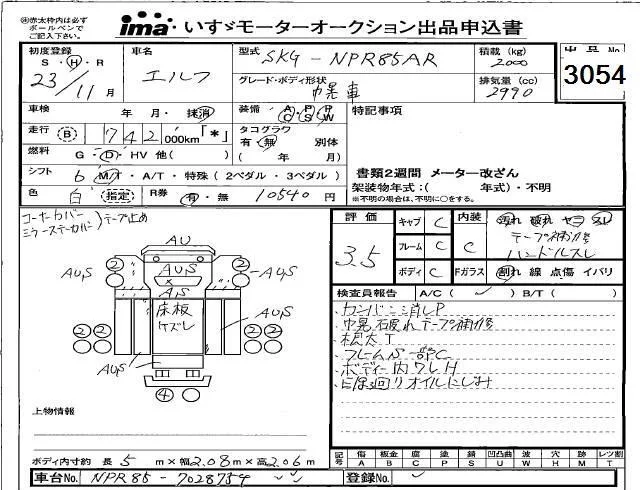 ※赤太枠内は必ず
ボールペンで
ご記入下さい。
ima いすゞモーターオークション出品申込書
初度登録
S・H・R
23/11月
車名
エルフ
型式
SKG-NPR85AR
積載 (kg)
2000
出品No.
3054
グレード・ボディ形状
巾晃車
排気量 (cc)
2990
車検
年 月・抹消
装備
A P P
C S W
特記事項
走行 B 742 000km「*」
タコグラフ
有・無 別体
( 年 月)
燃料
G・D・HV 他( )
シフト
6 M/T・A/T・特殊 (2ペダル・3ペダル)
書類2週間 メーター改ざん
架装物年式:( 年式)・不明
※不明の場合は、不明に○をする。
色
白 指定
R券
有・無 10540円
コーナーカバー
ミラーステーカバー) テープ止め
評価
3.5
キャブ C
フレーム C
ボディ C
内装
C
Fガラス
汚れ 破れ ヤニ スレ
テープ補修
ハンドルスレ
割れ 線 点傷 イバリ
検査員報告 A/C ( ✓ ) B/T ( )
AU
AUS
AS
床板
ケズレ
AUS
AUS
AUS
AUS
2 2
2 2
2 2
4
・カンバン消しP
・フレームS一部C
・ボディー内ワレH
・E/G廻りオイルにじみ
上物情報
ボディ内寸約 長 5 m×幅2.08m×高2.06m
記号
傷 板金 腐 塗 錆 凹凸曲 波 穴 跡 レンズ割
A B C P S U W H M T
車台No. NPR85-7028754
登録No.